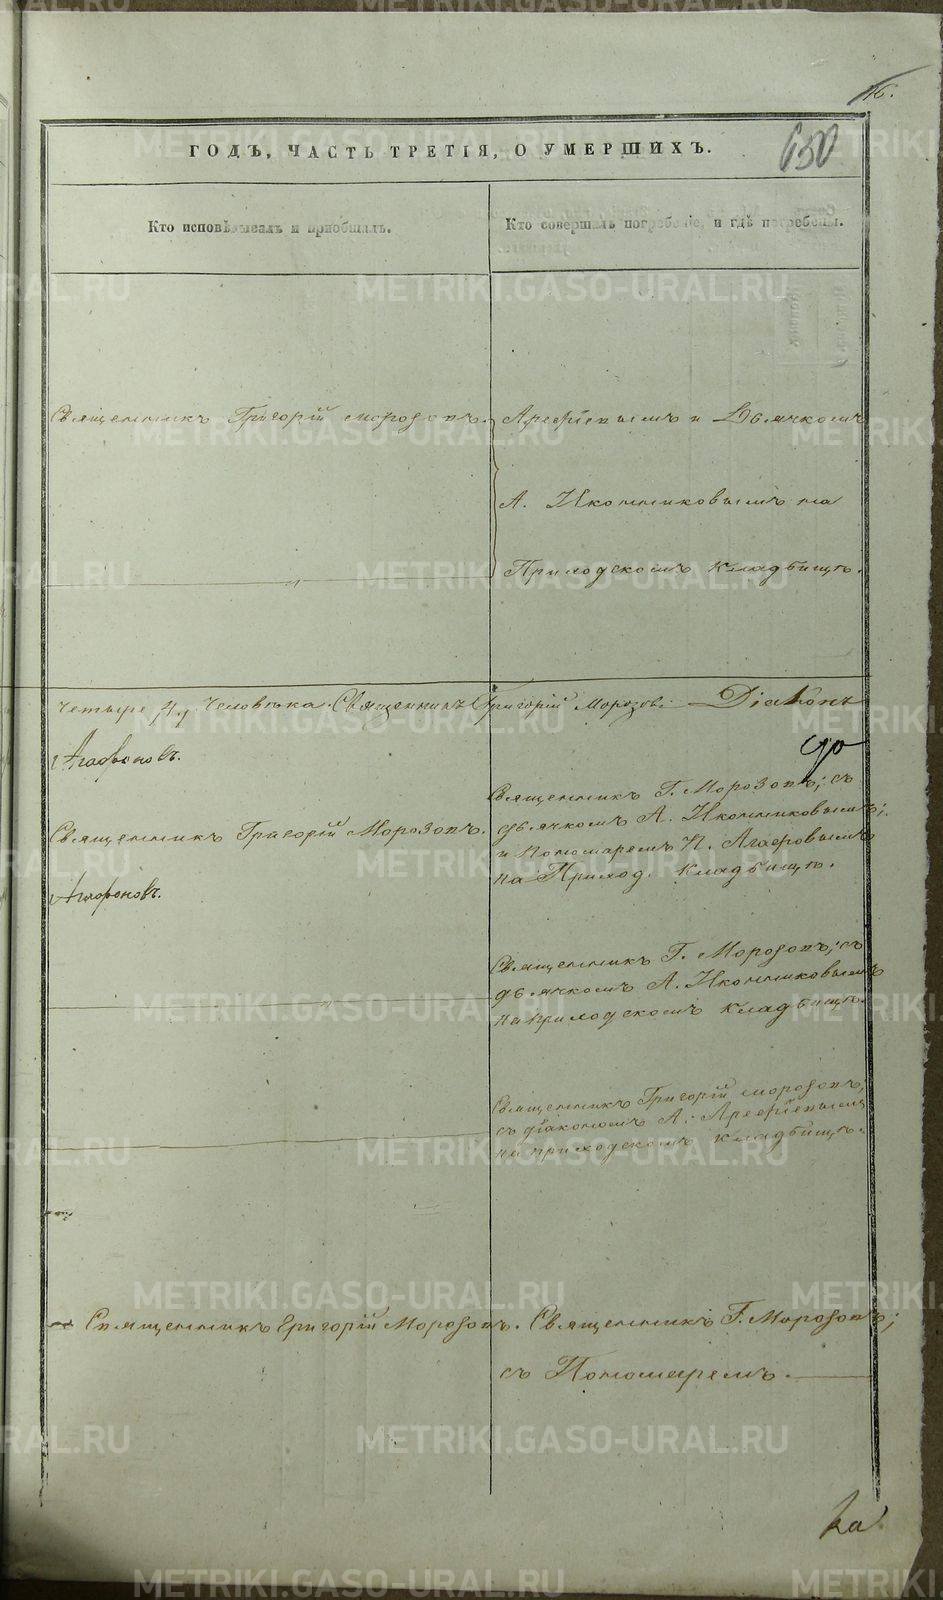 16.
650
ГОДЪ, ЧАСТЬ ТРЕТІЯ, О УМЕРШИХЪ.
Кто исповѣдывалъ и пріобщалъ.
Кто совершалъ погребеніе, и гдѣ погребены.
Священникъ Григорій Морозовъ.
Арефіевымъ и Дьячкомъ
А. Иконниковымъ на
Приходскомъ кладбищѣ.
Четыре 4, человѣка. Священникъ Григорій Морозовъ. Діаконъ
Священникъ Г. Морозовъ; съ
дьячкомъ А. Иконниковымъ;
и Пономаремъ Н. Агафовымъ
на Приход. кладбищѣ.
Агафоновъ.
Священникъ Григорій Морозовъ.
Агафоновъ.
Священникъ Г. Морозовъ; съ
дьячкомъ А. Иконниковымъ
на приходскомъ кладбищѣ.
Священникъ Григорій Морозовъ,
съ діакономъ А. Арефіевымъ
на приходскомъ кладбищѣ.
Священникъ Григорій Морозовъ.
Священникъ Г. Морозовъ;
съ Пономаремъ.
METRIKI.GASO-URAL.RU